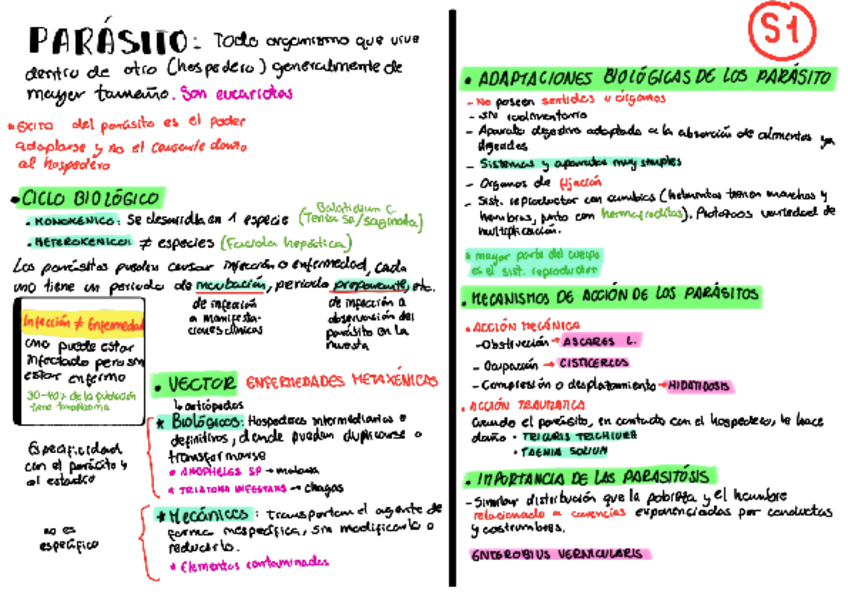 PARÁSITO: Todo organismo que vive
dentro de otro (hospedero) generalmente de
mayor tamaño. Son eucariotas
* EXITO del parásito es el poder
adaptarse y no el causarle daño
al hospedero
• CICLO BIOLÓGICO
• MONOXÉNICO: Se desarrolla en 1 especie (Tenia sa/saginata)
Balatidium C.
• HETEROXENICO: ≠ especies (Faciola hepática)
Los parásitos pueden causar infección o enfermedad, cada
uno tiene un periodo de incubación, periodo prepatente, etc.
de infección
a manifesta-
ciones clínicas
de infección a
observación del
parásito en la
muestra
Infección ≠ Enfermedad
uno puede estar
infectado pero sin
estar enfermo
30-40% de la población
tiene toxoplasma
• VECTOR ENFERMEDADES METAXÉNICAS
↳ artópodos
Especificidad
con el parásito y
el estadio
* Biológicos: Hospederos intermediarios o
definitivos, donde puedan duplicarse o
transformarse
* ANOPHELES SP → malaria
* TRIATOMA INFESTANS → chagas
no es
específico
* Mecánicos: transportan el agente de
forma inespecífica, sin modificarlo o
reducirlo.
* Elementos contaminados
S1
• ADAPTACIONES BIOLÓGICAS DE LOS PARÁSITO
- No poseen sentidos u órganos
- SN rudimentario
- Aparato digestivo adaptado a la absorción de alimentos ya
digeridos
- Sistemas y aparatos muy simples
- Organos de fijación
- Sist. reproductor con cambios (helmintos tienen machos y
hembras, junto con hermafroditas). Protozoos variedad de
multiplicación.
* mayor parte del cuerpo
es el sist. reproductor
• MECANISMOS DE ACCIÓN DE LOS PARÁSITOS
• ACCIÓN MECÁNICA
- Obstrucción → ASCARIS L.
- Ocupación → CISTICERCOS
- Compresión o desplazamiento → HIDATIDOSIS
• ACCIÓN TRAUMATICA
Cuando el parásito, en contacto con el hospedero, le hace
daño • TRICURIS TRICHIURA
• TAENIA SOLIUM
• IMPORTANCIA DE LAS PARASITÓSIS
- Similar distribución que la pobreza y el hambre
relacionado a carencias exponenciadas por conductas
y costumbres.
ENTEROBIUS VERMICULARIS